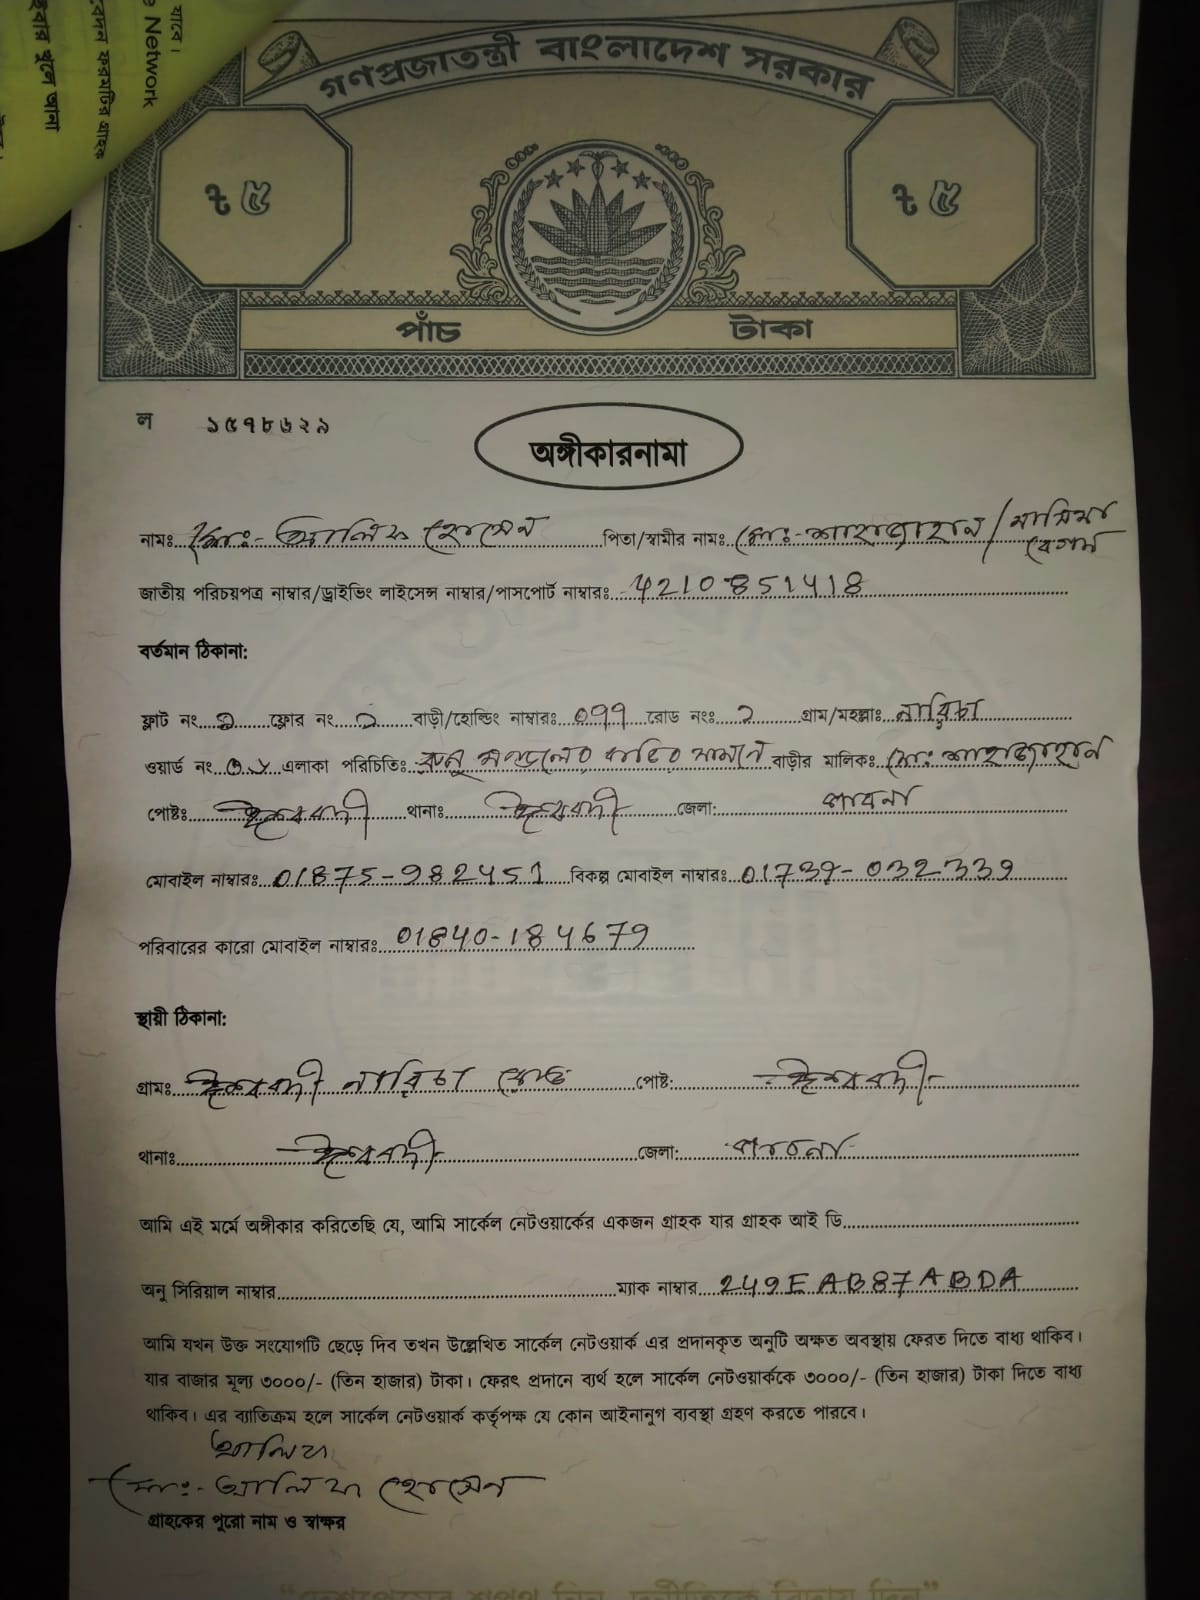 যাবে।
e Network
বেদন ফরমটির গ্রাহক
বার খুলে আনা
গণপ্রজাতন্ত্রী বাংলাদেশ সরকার
৳ ৫ ৳ ৫
পাঁচ টাকা
ল ১৫৭৮৬২৯
অঙ্গীকারনামা
নামঃ মোঃ- আলিফ হোসেন পিতা/স্বামীর নামঃ মোঃ-শাহাজাহান/নাসিমা
বেগম
জাতীয় পরিচয়পত্র নাম্বার/ড্রাইভিং লাইসেন্স নাম্বার/পাসপোর্ট নাম্বারঃ 4210851418
বর্তমান ঠিকানা:
ফ্লাট নং ফ্লোর নং বাড়ী/হোল্ডিং নাম্বারঃ ০৭৭ রোড নংঃ ২ গ্রাম/মহল্লাঃ নারিচা
ওয়ার্ড নং এলাকা পরিচিতিঃ সামনে বাড়ীর মালিকঃ মোঃ শাহাজাহান
পোষ্টঃ ঈশ্বরদী থানাঃ ঈশ্বরদী জেলা: পাবনা
মোবাইল নাম্বারঃ 01875-982451 বিকল্প মোবাইল নাম্বারঃ 01739-032339
পরিবারের কারো মোবাইল নাম্বারঃ 01840-184679
স্থায়ী ঠিকানা:
গ্রামঃ ঈশ্বরদী নারিচা পোষ্ট: ঈশ্বরদী
থানাঃ ঈশ্বরদী জেলা: পাবনা
আমি এই মর্মে অঙ্গীকার করিতেছি যে, আমি সার্কেল নেটওয়ার্কের একজন গ্রাহক যার গ্রাহক আই ডি
অনু সিরিয়াল নাম্বার ম্যাক নাম্বার 249EAB87ABDA
আমি যখন উক্ত সংযোগটি ছেড়ে দিব তখন উল্লেখিত সার্কেল নেটওয়ার্ক এর প্রদানকৃত অনুটি অক্ষত অবস্থায় ফেরত দিতে বাধ্য থাকিব।
যার বাজার মূল্য ৩০০০/- (তিন হাজার) টাকা। ফেরৎ প্রদানে ব্যর্থ হলে সার্কেল নেটওয়ার্ককে ৩০০০/- (তিন হাজার) টাকা দিতে বাধ্য
থাকিব। এর ব্যাতিক্রম হলে সার্কেল নেটওয়ার্ক কর্তৃপক্ষ যে কোন আইনানুগ ব্যবস্থা গ্রহণ করতে পারবে।
আলিফ
মোঃ- আলিফ হোসেন
গ্রাহকের পুরো নাম ও স্বাক্ষর